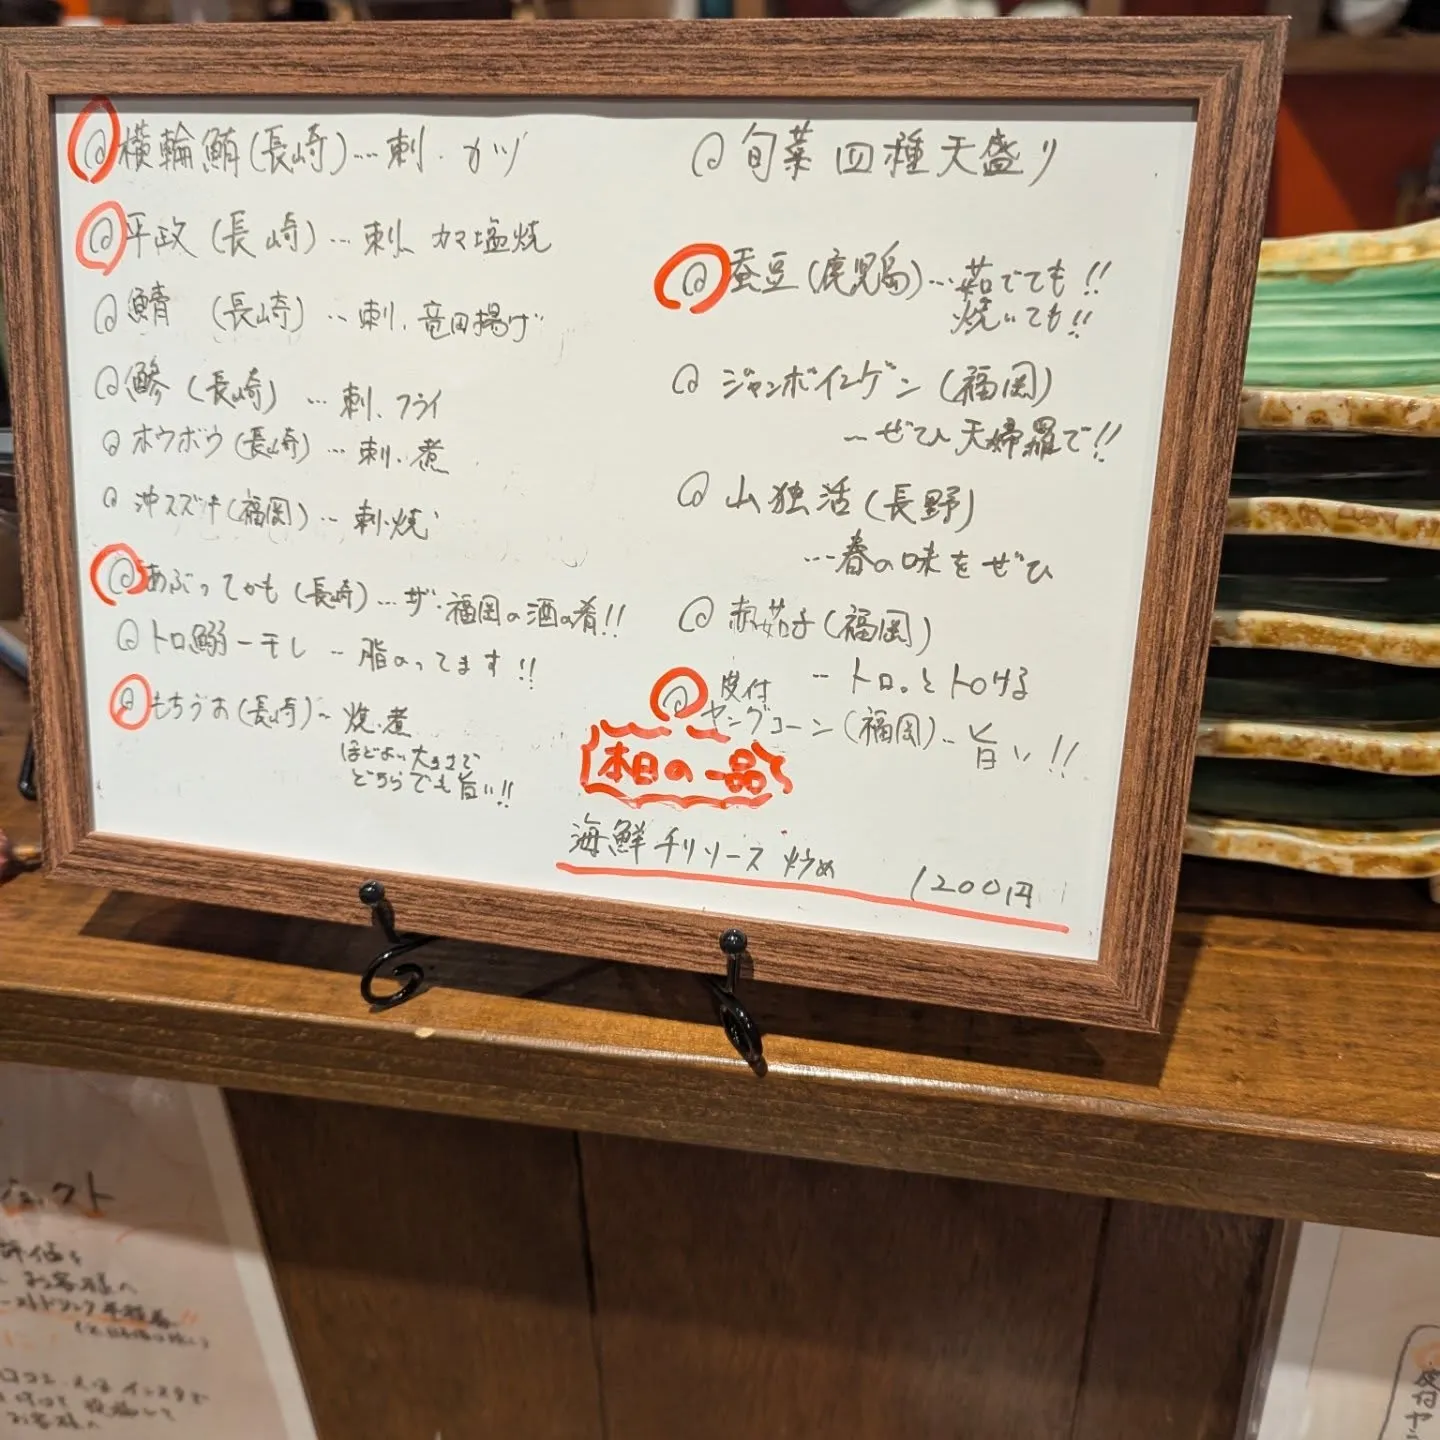 @ 横輪鮪(長崎)…刺・カツ
@ 平政(長崎)…刺、カマ塩焼
@ 鯖 (長崎)…刺、竜田揚げ
@ 鯵(長崎)…刺、フライ
@ ホウボウ(長崎)…刺、煮
@ 沖スズキ(福岡)…刺・焼
@ あぶってかも(長崎)…ザ・福岡の酒の肴!!
@ トロ鰯一干し…脂のってます!!
@ もちうお(長崎)~焼、煮
ほどよい大きさで
どちらでも旨い!!
@ 旬菜四種天盛り
@ 蚕豆(鹿児島)…茹でても!!
焼いても!!
@ ジャンボインゲン(福岡)
…ぜひ天婦羅で!!
@ 山独活(長野)
…春の味をぜひ
@ 赤茄子(福岡)
…トロっとトロける
@ 皮付
ヤングコーン(福岡)…旨い!!
本日の一品
海鮮チリソース炒め 1200円
お客様へ
お客様へ